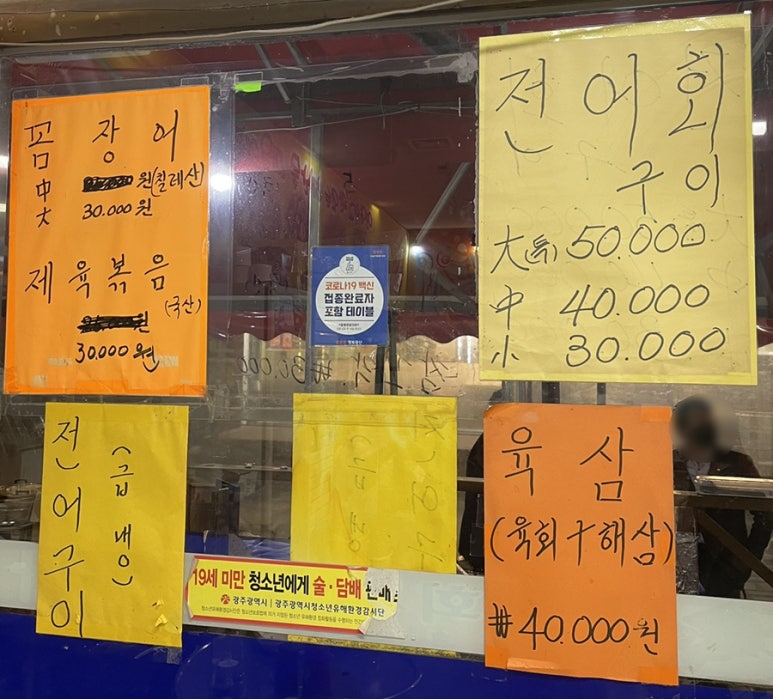 꼼장어
中 원(칠레산)
大 30.000원
제육볶음
(국산)
30.000원
전어회
구이
大(특) 50.000
中 40.000
小 30.000
코로나19 백신
접종완료자
포함 테이블
₩30.000
전어구이
(급냉)
육삼
(육회+해삼)
₩40.000원
19세 미만 청소년에게 술·담배 판매
광주광역시 | 광주광역시청소년유해환경감시단